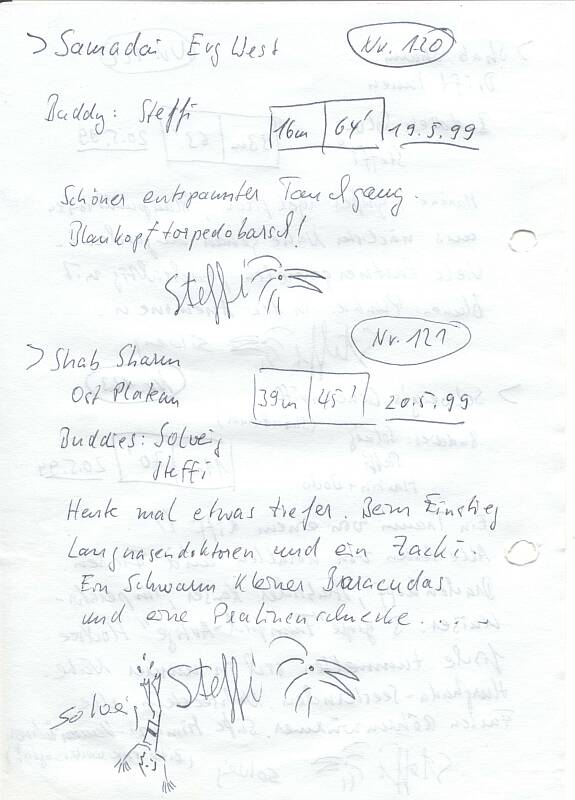 > Samadai Erg West Nr. 120
Buddy: Steffi 16m 64' 19.5.99
Schöner entspannter Tauchgang.
Blaukopftorpedobarsch!
Steffi
Nr. 121
> Shab Sharm
Ost Plateau 39m 45' 20.5.99
Buddies: Solveig
Steffi
Heute mal etwas tiefer. Beim Einstieg
Langnasendoktoren und ein Zacki.
Ein Schwarm kleiner Baracudas
und eine Pralinenschnecke.....
Solveig Steffi